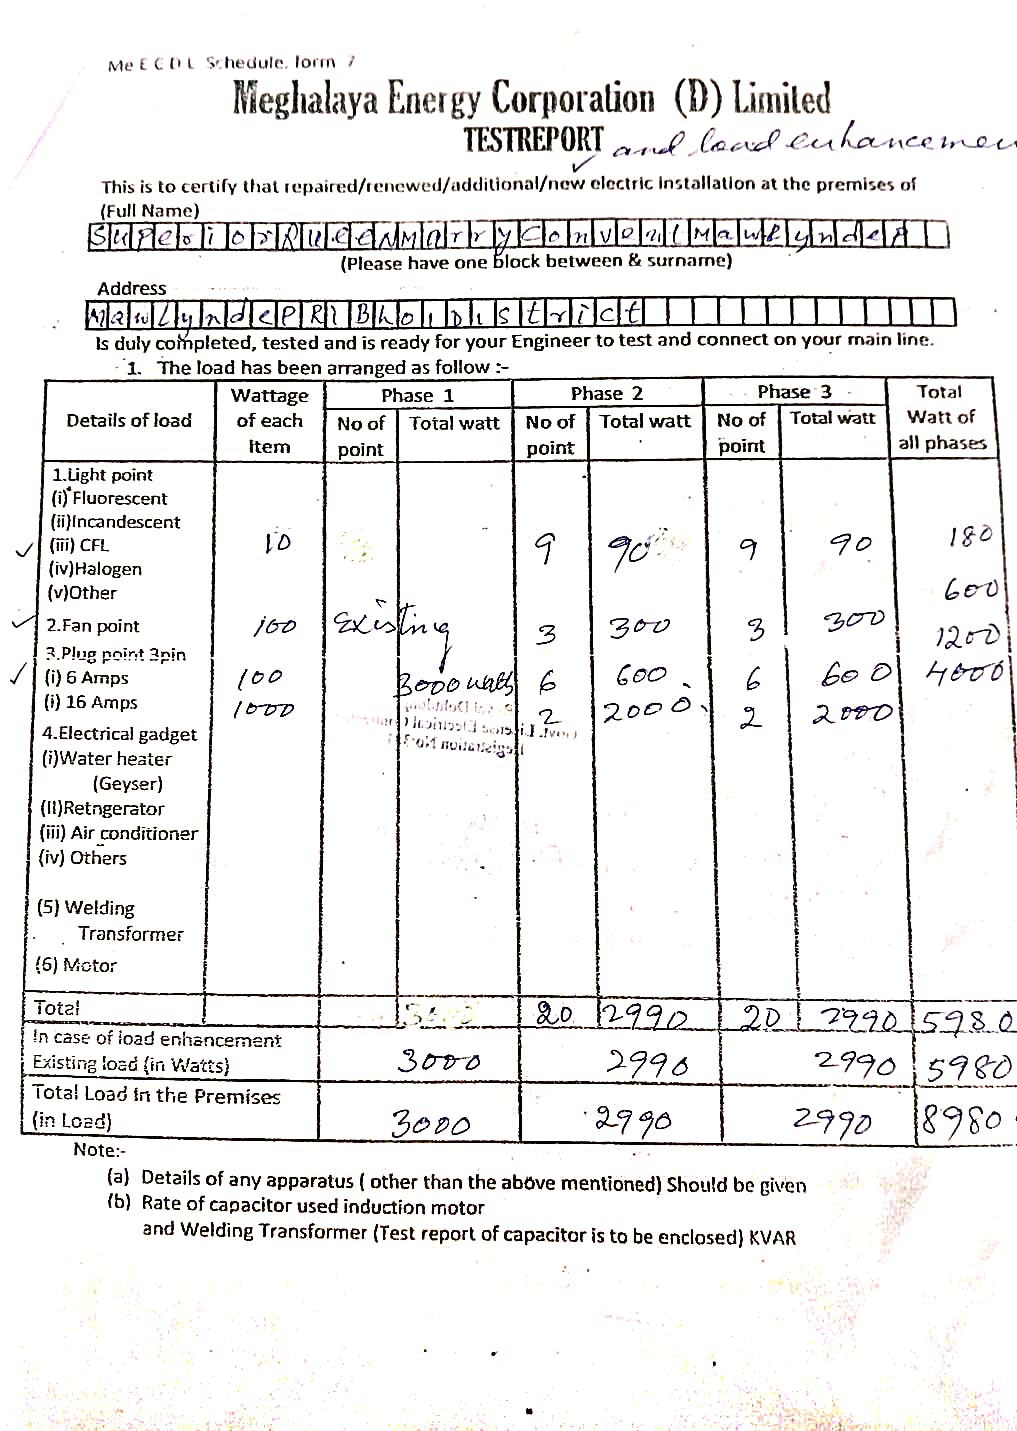 MeECDL Schedule. form 7
Meghalaya Energy Corporation (D) Limited
TESTREPORT and load enhancemen
This is to certify that repaired/renewed/additional/new electric installation at the premises of
(Full Name)
Superior QUEENMarryConventMawlyndeP
(Please have one block between & surname)
Address
MawlyndePRIBhoiDistrict
Is duly completed, tested and is ready for your Engineer to test and connect on your main line.
1. The load has been arranged as follow :-
Details of load Wattage of each Item Phase 1 Phase 2 Phase 3 Total Watt of all phases
No of point Total watt No of point Total watt No of point Total watt
1.Light point
(i) Fluorescent
(ii)Incandescent
(iii) CFL 10 9 90 9 90 180
(iv)Halogen
(v)Other 600
2.Fan point 100 Existing 3 300 3 300 1200
3.Plug point 3pin
(i) 6 Amps 100 3000 watts 6 600 6 600 4000
(i) 16 Amps 1000 2 2000 2 2000
4.Electrical gadget
(i)Water heater
(Geyser)
(II)Retngerator
(iii) Air conditioner
(iv) Others
(5) Welding
Transformer
(6) Motor
Total 20 2990 20 2990 5980
In case of load enhancement
Existing load (in Watts) 3000 2990 2990 5980
Total Load in the Premises
(in Load) 3000 2990 2990 8980
Note:-
(a) Details of any apparatus ( other than the above mentioned) Should be given
(b) Rate of capacitor used induction motor
and Welding Transformer (Test report of capacitor is to be enclosed) KVAR